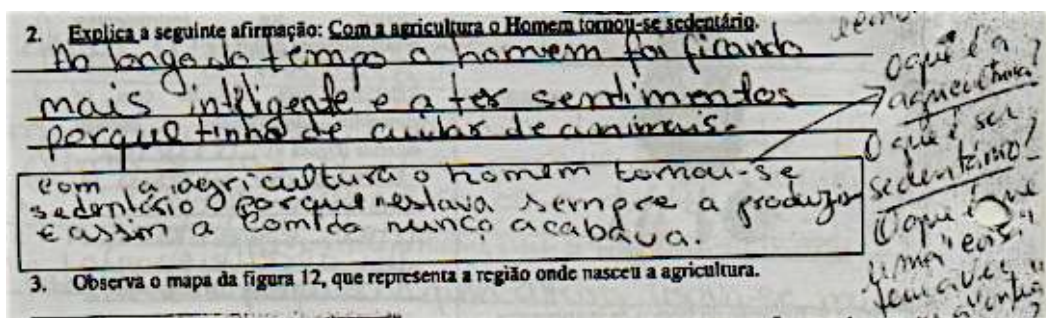 2. Explica a seguinte afirmação: Com a agricultura o Homem tornou-se sedentário.
Ao longo do tempo o homem foi ficando
mais inteligente e a ter sentimentos
porque tinha de cuidar de animais.
com a agricultura o homem tornou-se
sedentário porque estava sempre a produzir
e assim a comida nunca acabava.
O que é a
agricultura?
O que é ser
sedentário?
O que é que
uma "coisa"
tem a ver
3. Observa o mapa da figura 12, que representa a região onde nasceu a agricultura.